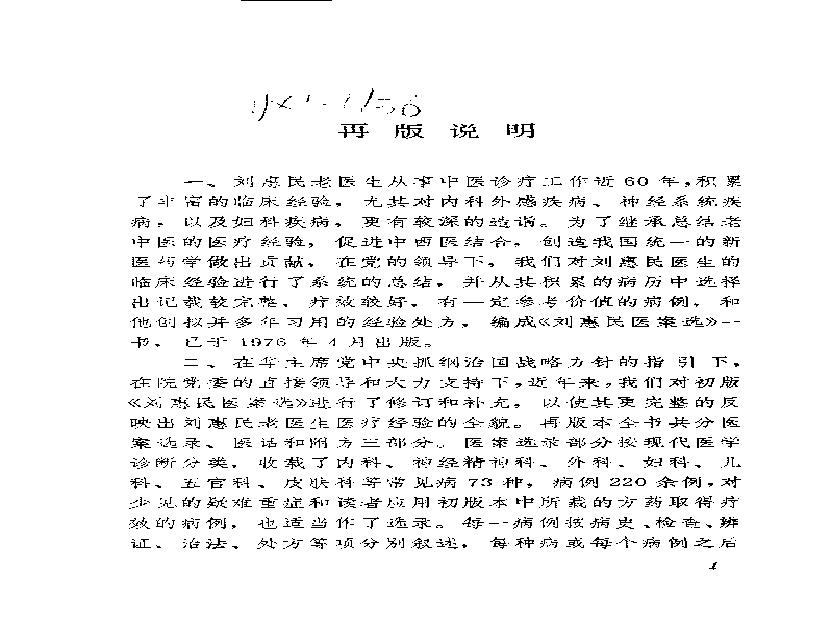 再版说明
一、刘惠民老医生从事中医诊疗工作近60年，积累
了丰富的临床经验，尤其对内科外感疾病、神经系统疾
病，以及妇科疾病，更有较深的造诣。为了继承总结老
中医的医疗经验，促进中西医结合，创造我国统一的新
医药学做出贡献，在党的领导下，我们对刘惠民医生的
临床经验进行了系统的总结，并从其积累的病历中选择
出记载较完整、疗效较好、有一定参考价值的病例，和
他创拟并多年习用的经验处方，编成《刘惠民医案选》一
书，已于1976年4月出版。
二、在华主席党中央抓纲治国战略方针的指引下，
在院党委的直接领导和大力支持下，近年来，我们对初版
《刘惠民医案选》进行了修订和补充，以使其更完整的反
映出刘惠民老医生医疗经验的全貌。再版本全书共分医
案选录、医话和附方三部分。医案选录部分按现代医学
诊断分类，收载了内科、神经精神科、外科、妇科、儿
科、五官科、皮肤科等常见病73种，病例220余例，对
少见的疑难重症和读者应用初版本中所载的方药取得疗
效的病例，也适当作了选录。每一病例按病史、检查、辨
证、治法、处方等项分别叙述，每种病或每个病例之后
1